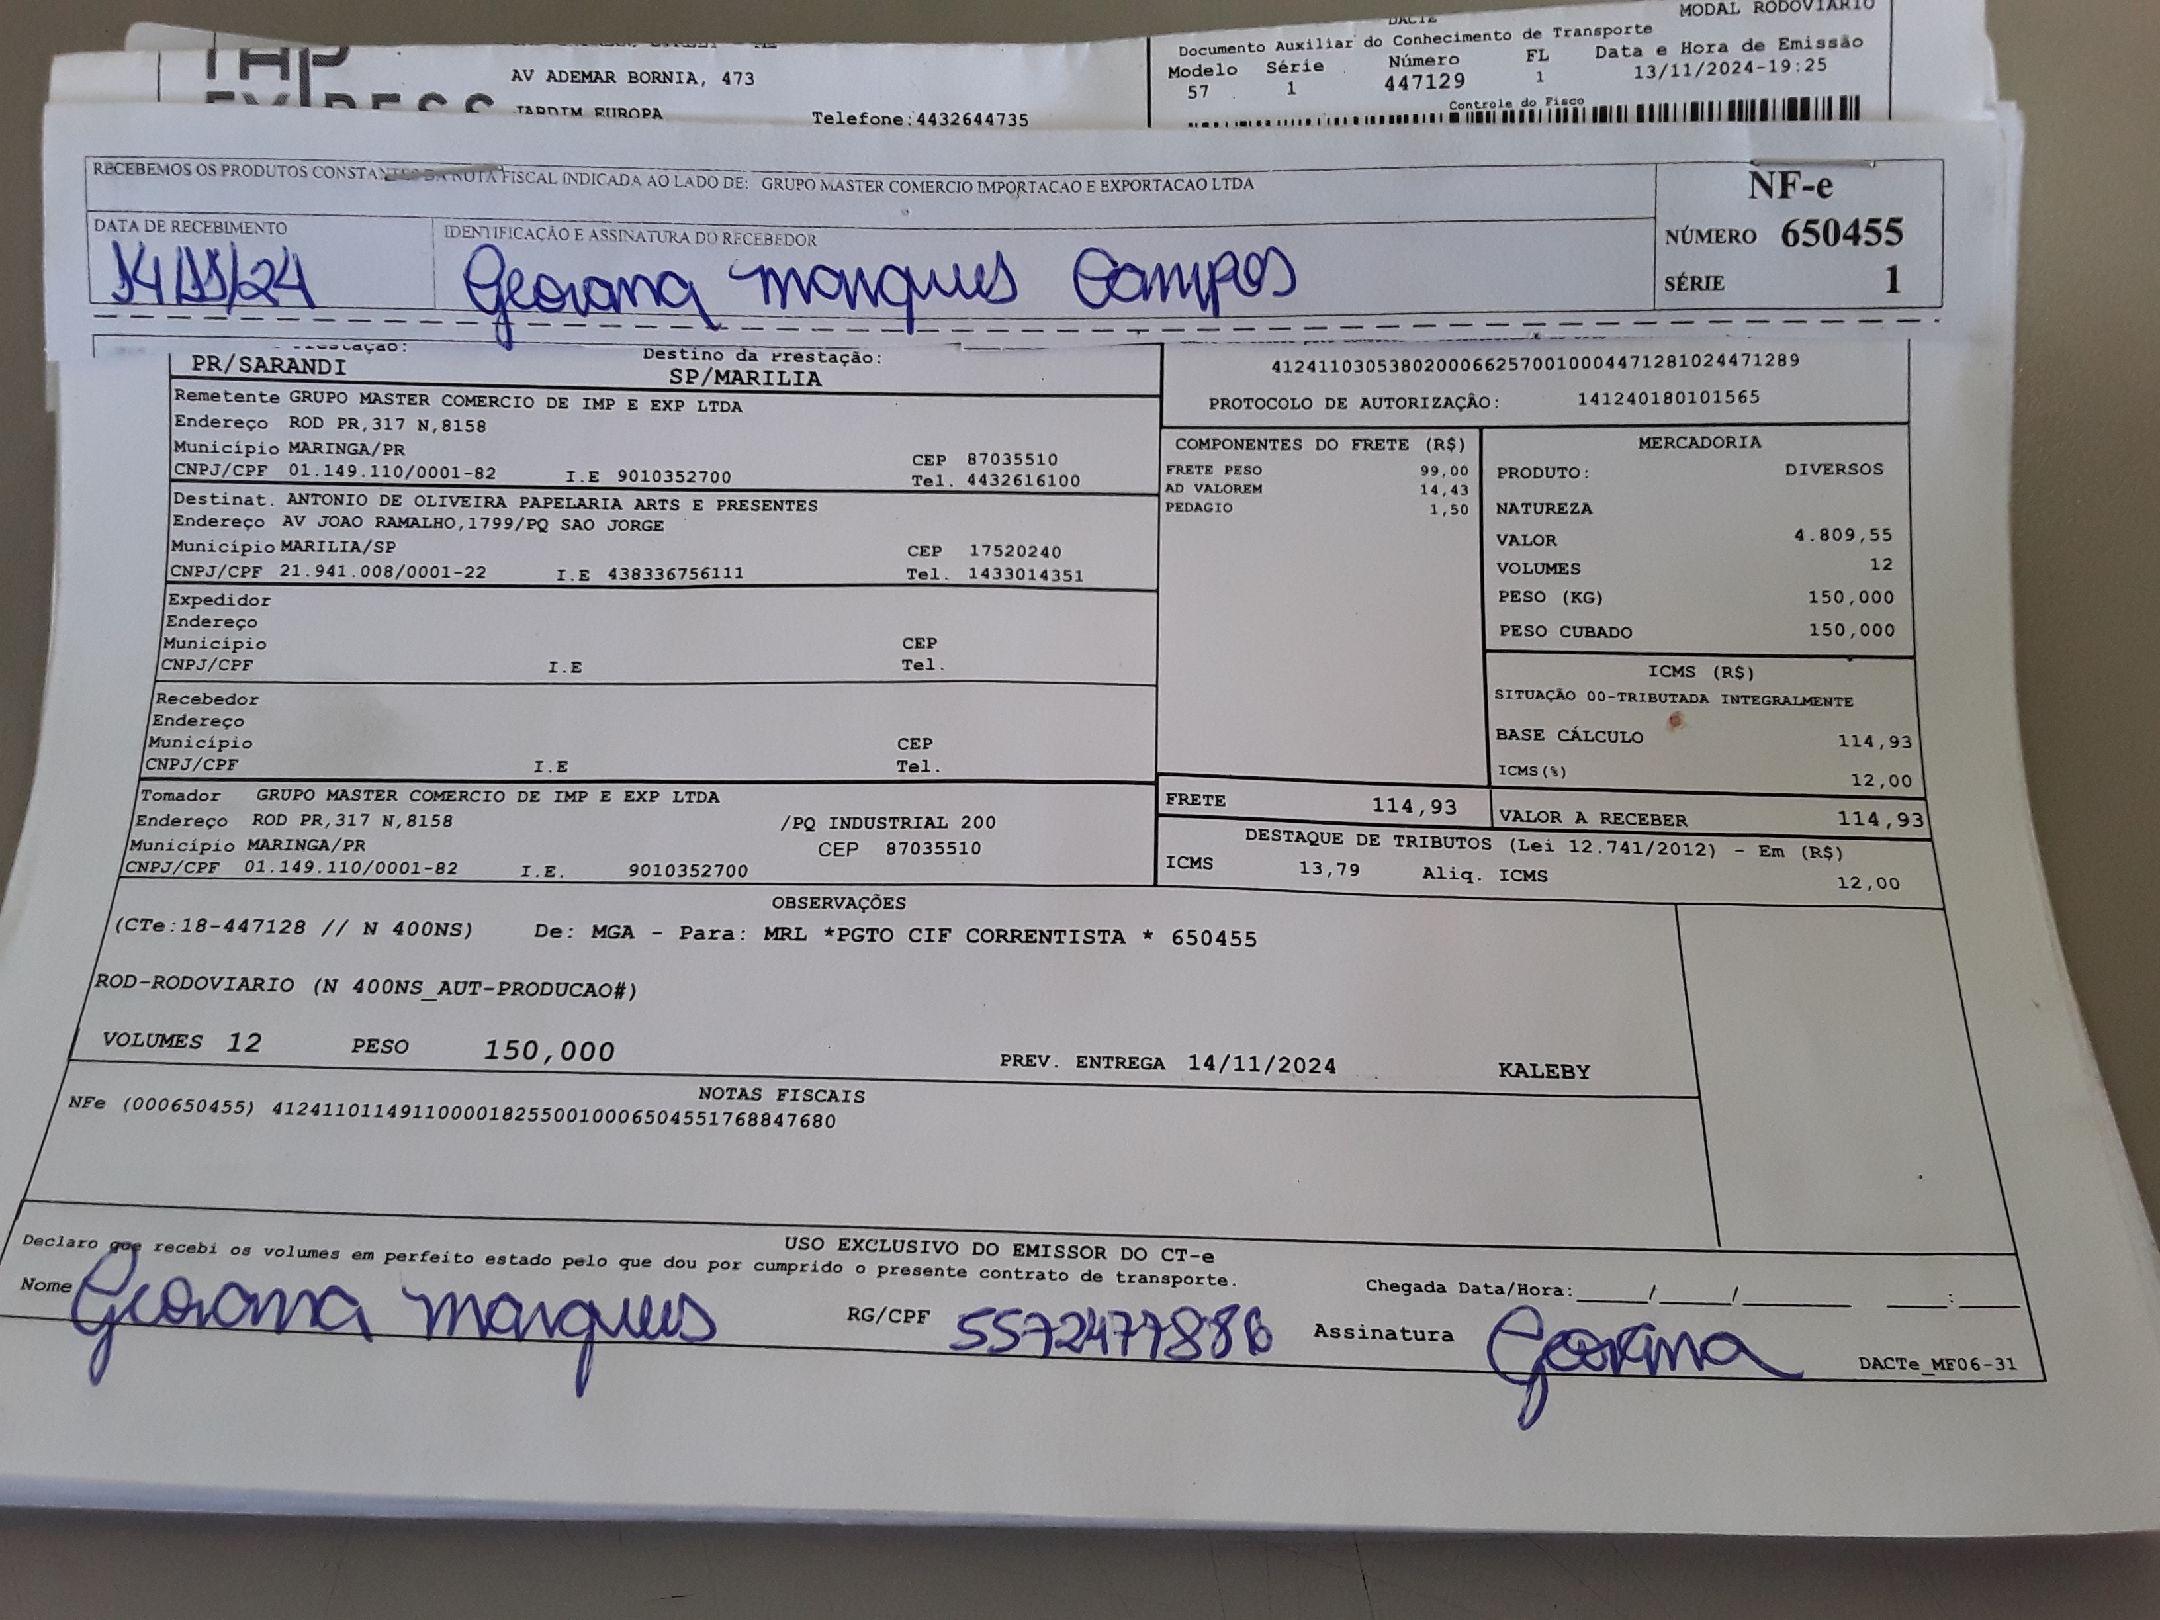 MODAL RODOVIARIO
DACTE
Documento Auxiliar do Conhecimento de Transporte
AV ADEMAR BORNIA, 473
Modelo Série Número FL Data e Hora de Emissão
57 1 447129 1 13/11/2024-19:25
JARDIM EUROPA Telefone:4432644735
Controle do Fisco
RECEBEMOS OS PRODUTOS CONSTANTES DA NOTA FISCAL INDICADA AO LADO DE: GRUPO MASTER COMERCIO IMPORTACAO E EXPORTACAO LTDA
NF-e
NÚMERO 650455
SÉRIE 1
DATA DE RECEBIMENTO
14/11/24
IDENTIFICAÇÃO E ASSINATURA DO RECEBEDOR
Geovana Marques Campos
PR/SARANDI
Destino da Prestação:
SP/MARILIA
41241103053802000662570010004471281024471289
PROTOCOLO DE AUTORIZAÇÃO: 141240180101565
Remetente GRUPO MASTER COMERCIO DE IMP E EXP LTDA
Endereço ROD PR,317 N,8158
Município MARINGA/PR CEP 87035510
CNPJ/CPF 01.149.110/0001-82 I.E 9010352700 Tel. 4432616100
Destinat. ANTONIO DE OLIVEIRA PAPELARIA ARTS E PRESENTES
Endereço AV JOAO RAMALHO,1799/PQ SAO JORGE
Município MARILIA/SP CEP 17520240
CNPJ/CPF 21.941.008/0001-22 I.E 438336756111 Tel. 1433014351
Expedidor
Endereço
Município CEP
CNPJ/CPF I.E Tel.
Recebedor
Endereço
Município CEP
CNPJ/CPF I.E Tel.
Tomador GRUPO MASTER COMERCIO DE IMP E EXP LTDA
Endereço ROD PR,317 N,8158 /PQ INDUSTRIAL 200
Município MARINGA/PR CEP 87035510
CNPJ/CPF 01.149.110/0001-82 I.E. 9010352700
COMPONENTES DO FRETE (R$)
FRETE PESO 99,00
AD VALOREM 14,43
PEDAGIO 1,50
MERCADORIA
PRODUTO: DIVERSOS
NATUREZA
VALOR 4.809,55
VOLUMES 12
PESO (KG) 150,000
PESO CUBADO 150,000
ICMS (R$)
SITUAÇÃO 00-TRIBUTADA INTEGRALMENTE
BASE CÁLCULO 114,93
ICMS(%) 12,00
FRETE 114,93 VALOR A RECEBER 114,93
DESTAQUE DE TRIBUTOS (Lei 12.741/2012) - Em (R$)
ICMS 13,79 Aliq. ICMS 12,00
OBSERVAÇÕES
(CTe:18-447128 // N 400NS) De: MGA - Para: MRL *PGTO CIF CORRENTISTA * 650455
ROD-RODOVIARIO (N 400NS_AUT-PRODUCAO#)
VOLUMES 12 PESO 150,000 PREV. ENTREGA 14/11/2024 KALEBY
NOTAS FISCAIS
NFe (000650455) 41241101149110000182550010006504551768847680
USO EXCLUSIVO DO EMISSOR DO CT-e
Declaro que recebi os volumes em perfeito estado pelo que dou por cumprido o presente contrato de transporte.
Nome Geovana Marques RG/CPF 5572477886 Assinatura Geovana
Chegada Data/Hora:_____/_____/_______ ____:____
DACTe_MF06-31